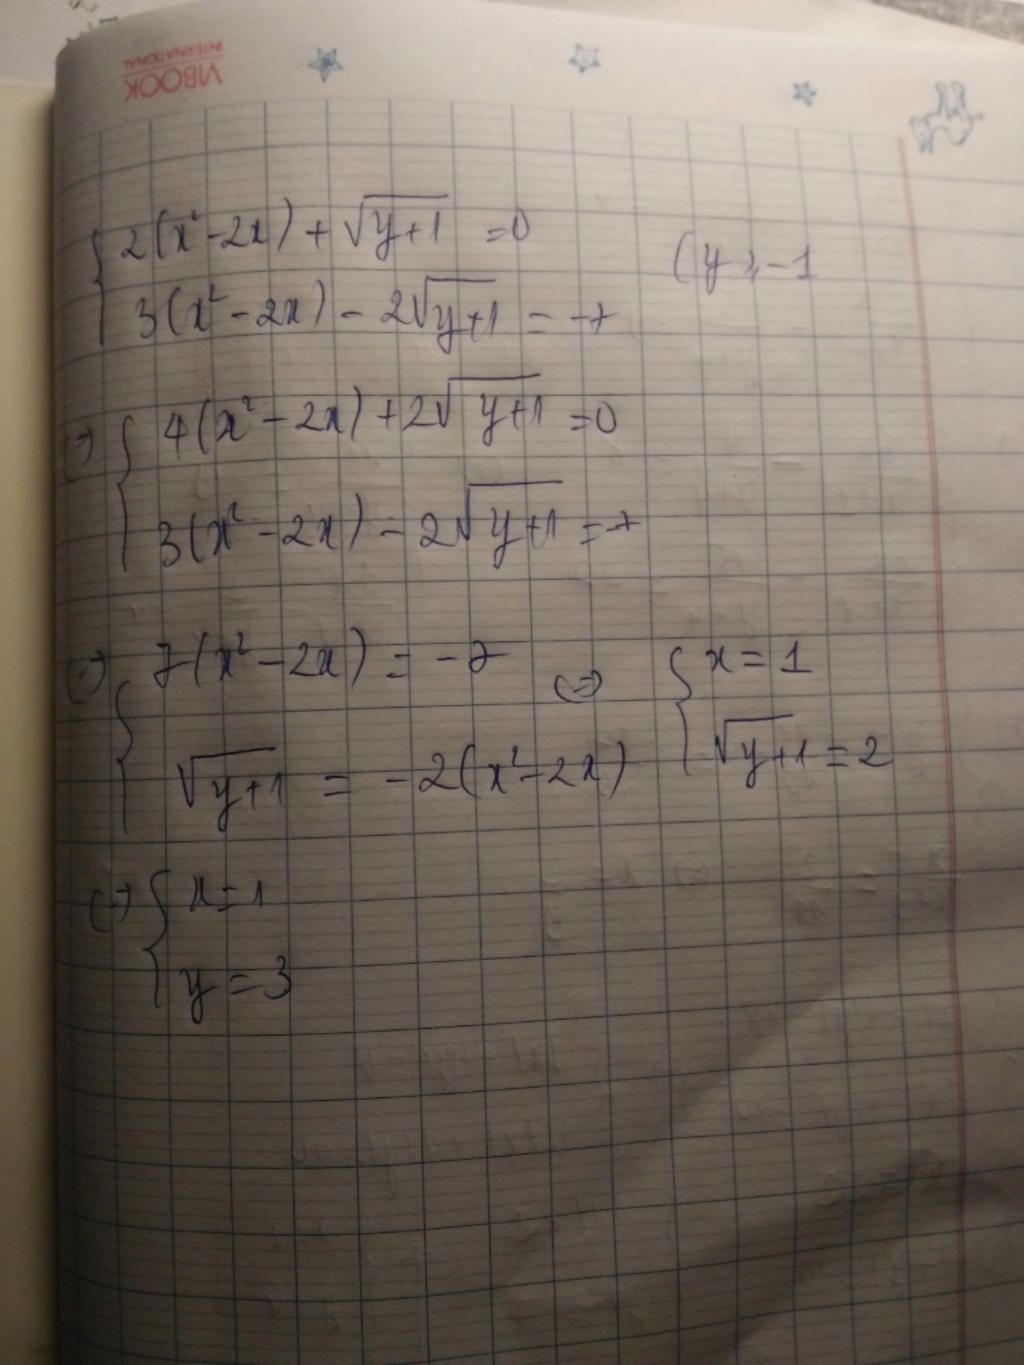 VIBOOK
INTERNATIONAL
{ 2(x² - 2x) + √(y+1) = 0
(y ≥ -1
3(x² - 2x) - 2√(y+1) = -7
(=) { 4(x² - 2x) + 2√(y+1) = 0
3(x² - 2x) - 2√(y+1) = -7
(=) { 7(x² - 2x) = -7
√(y+1) = -2(x² - 2x)
(=) { x = 1
√(y+1) = 2
(=) { x = 1
y = 3